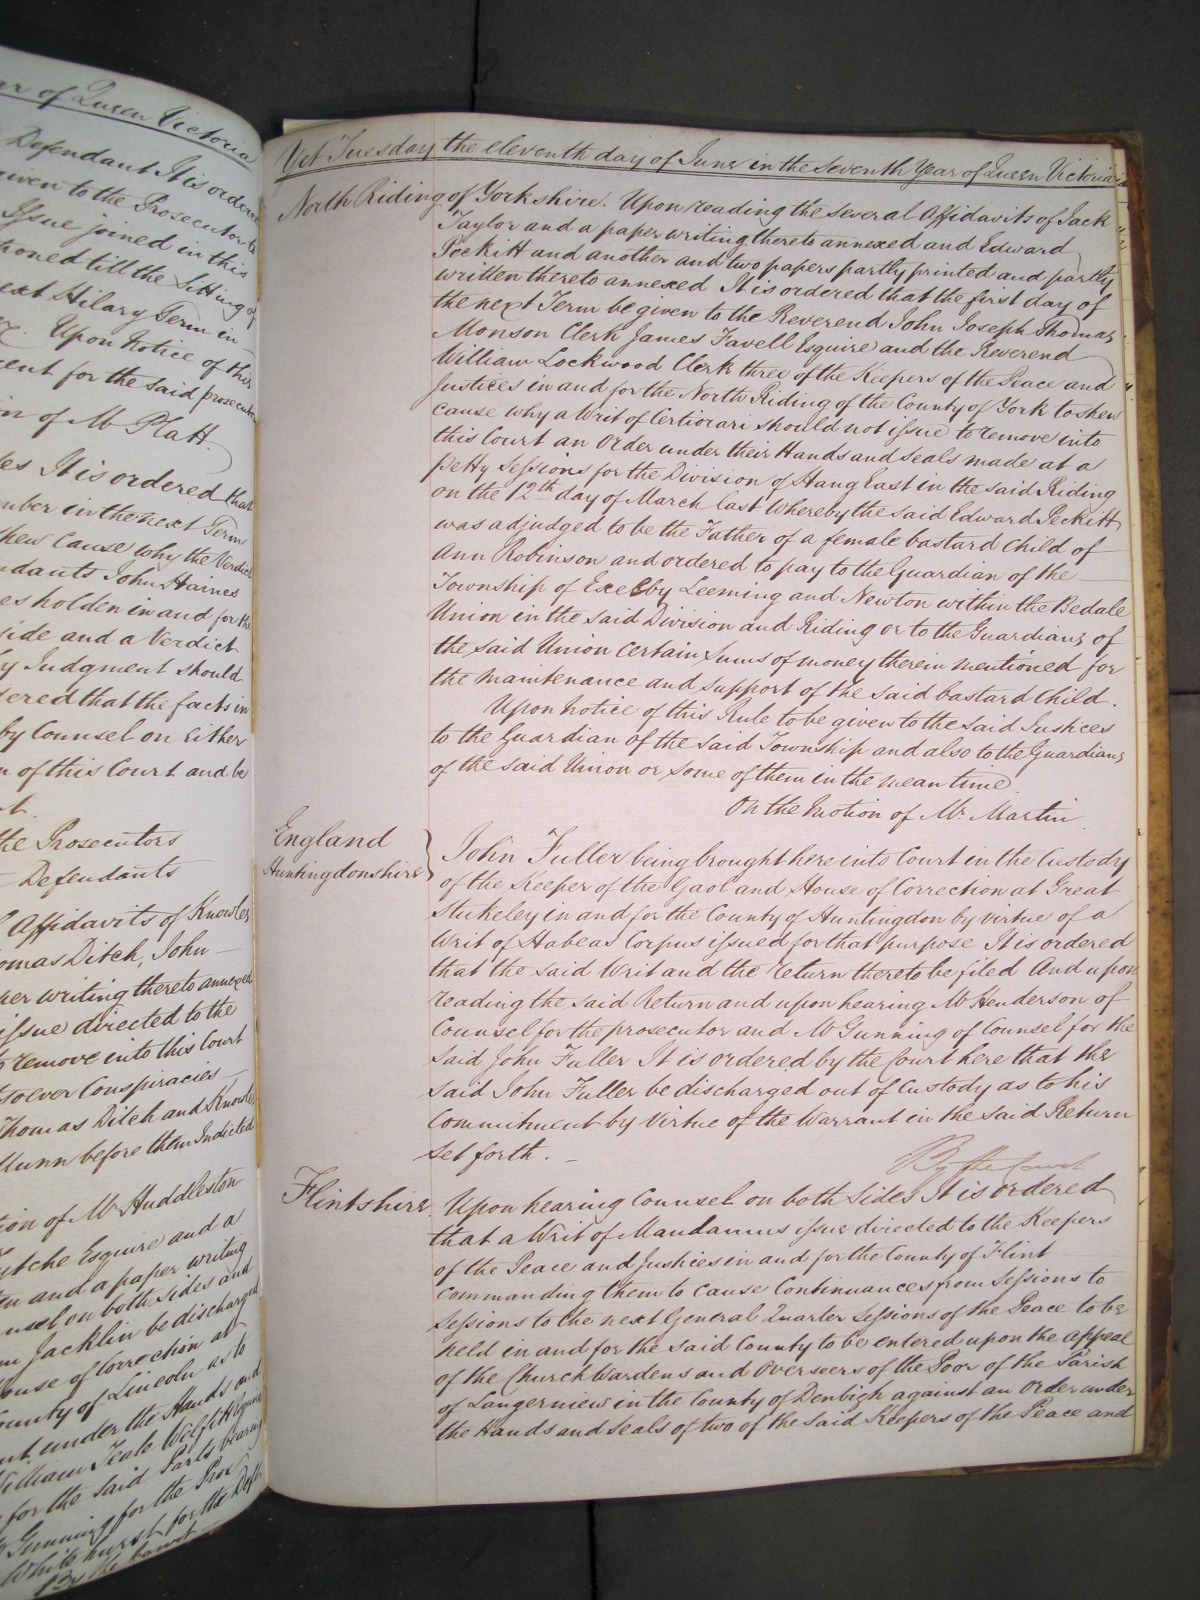 ar of Queen Victoria
Defendant It is ordered
given to the Prosecutor to
Issue joined in this
tioned till the Sitting of
ext Hilary Term in
Upon notice of this
cent for the said prosecutor
on of Mr Platt
es It is ordered that
mber in the next Term
shew cause why the Verdict
ndants John Haines
es holden in and for the
side and a Verdict
y Judgment should
dered that the facts in
by Counsel on either
n of this Court and be
the Prosecutors
Defendants
Affidavits of Knowles
omas Ditch, John
per writing thereto annexed
issue directed to the
to remove into this Court
tsoever Conspiracies
Thomas Ditch and Knowles
Munn before them Indicted
tion of Mr Huddleston
utche Esquire and a
en and a paper writing
unsel on both sides and
m Jacklin be discharged
ouse of Correction at
County of Lincoln as to
ent under the Hands and
William Teale Welfitt Esquire
for the said Parts bearing
Gunning for the Pros
Whitehurst for the Deft
By the Court
Yet Tuesday the eleventh day of June in the Seventh Year of Queen Victoria
North Riding of Yorkshire. Upon reading the several Affidavits of Jack
Taylor and a paper writing thereto annexed and Edward
Peckitt and another and two papers partly printed and partly
written thereto annexed It is ordered that the first day of
the next Term be given to the Reverend John Joseph Thomas
Monson Clerk James Favell Esquire and the Reverend
William Lockwood Clerk three of the Keepers of the Peace and
Justices in and for the North Riding of the County of York to shew
cause why a Writ of Certiorari should not issue to remove into
this Court an Order under their Hands and seals made at a
petty Sessions for the Division of Hang East in the said Riding
on the 12th day of March last whereby the said Edward Peckitt
was adjudged to be the Father of a female bastard child of
Ann Robinson and ordered to pay to the Guardian of the
Township of Exelby Leeming and Newton within the Bedale
Union in the said Division and Riding or to the Guardians of
the said Union certain sums of money therein mentioned for
the maintenance and support of the said bastard child.
Upon notice of this Rule to be given to the said Justices
to the Guardian of the said Township and also to the Guardians
of the said Union or some of them in the mean time
On the Motion of Mr. Martin
England
Huntingdonshire
John Fuller being brought here into Court in the Custody
of the Keeper of the Gaol and House of Correction at Great
Stukeley in and for the County of Huntingdon by virtue of a
Writ of Habeas Corpus issued for that purpose It is ordered
that the said Writ and the return thereto be filed And upon
reading the said Return and upon hearing Mr Henderson of
Counsel for the prosecutor and Mr Gunning of Counsel for the
said John Fuller It is ordered by the Court here that the
said John Fuller be discharged out of Custody as to his
Commitment by virtue of the Warrant in the said Return
set forth.
By the Court
Flintshire Upon hearing Counsel on both Sides It is ordered
that a Writ of Mandamus issue directed to the Keepers
of the Peace and Justices in and for the County of Flint
commanding them to cause Continuances from Sessions to
Sessions to the next General Quarter Sessions of the Peace to be
held in and for the said County to be entered upon the appeal
of the Church Wardens and Overseers of the Poor of the Parish
of Langerniew in the County of Denbigh against an Order under
the Hands and seals of two of the said Keepers of the Peace and